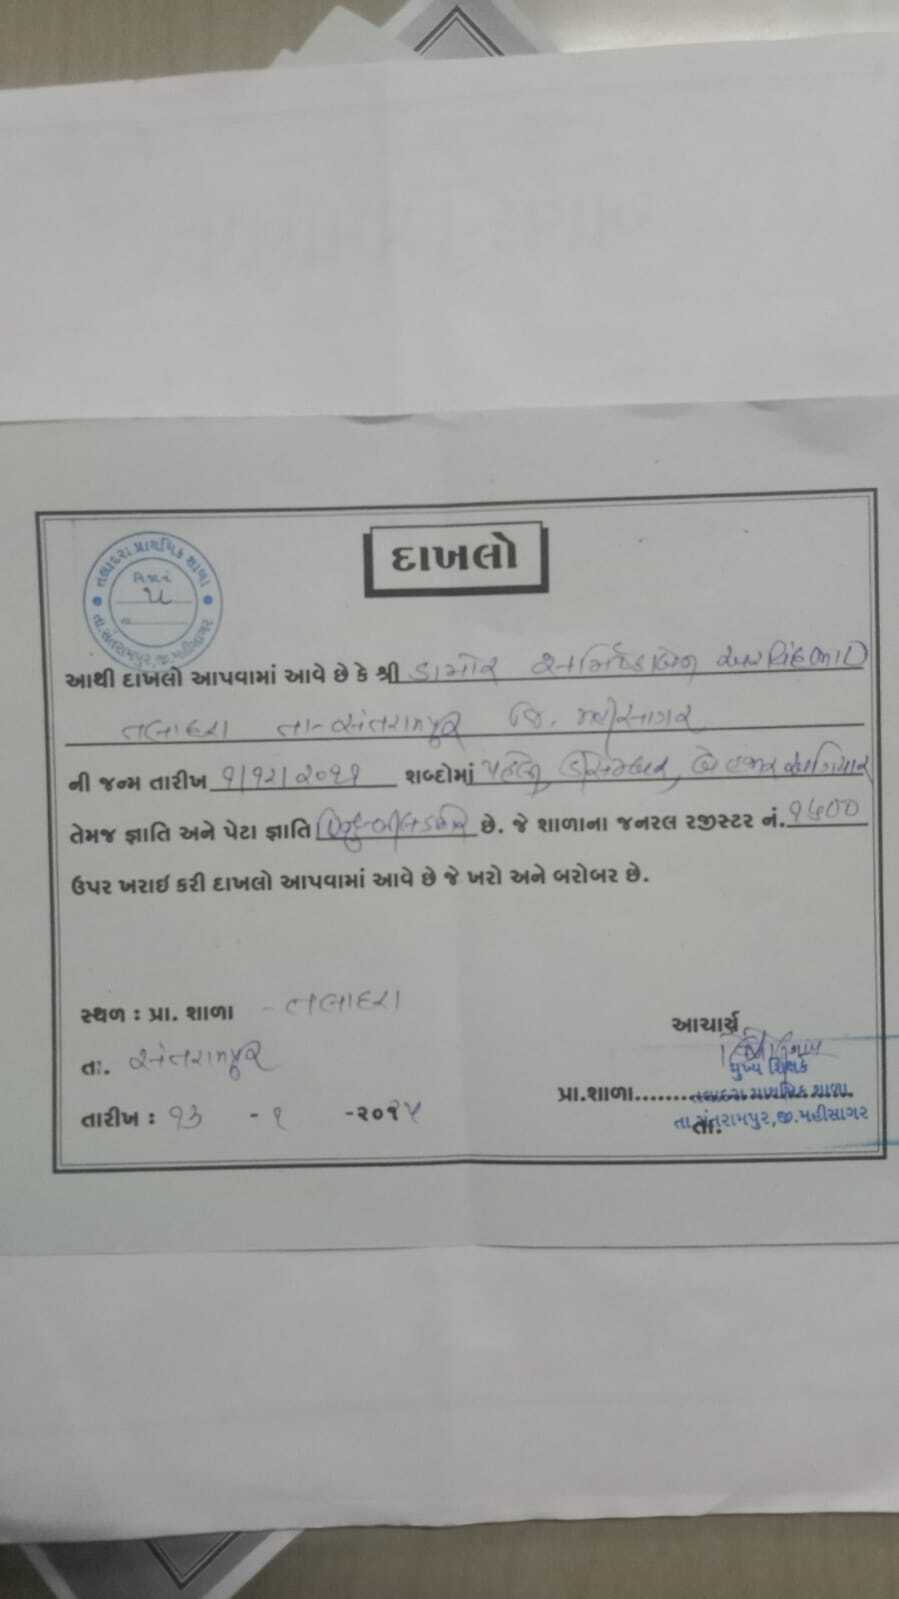 દાખલો
તલાદરા પ્રાથમિક શાળા
તા.સંતરામપુર,જી.મહીસાગર
આથી દાખલો આપવામાં આવે છે કે શ્રી ડામોર
તલાદરા તા-સંતરામપુર જિ. મહીસાગર
ની જન્મ તારીખ ૧/૧૨/૨૦૧૧ શબ્દોમાં પહેલી ડિસેમ્બર, બે હજાર અગિયાર
તેમજ જ્ઞાતિ અને પેટા જ્ઞાતિ છે. જે શાળાના જનરલ રજીસ્ટર નં.
ઉપર ખરાઈ કરી દાખલો આપવામાં આવે છે જે ખરો અને બરોબર છે.
સ્થળ : પ્રા. શાળા - તલાદરા
આચાર્ય
તા. સંતરામપુર
મુખ્ય શિક્ષક
પ્રા.શાળા......... તલાદરા પ્રાથમિક શાળા
તારીખ : ૧૩ - ૧ -૨૦૧
તા.સંતરામપુર,જી.મહીસાગર
તા.